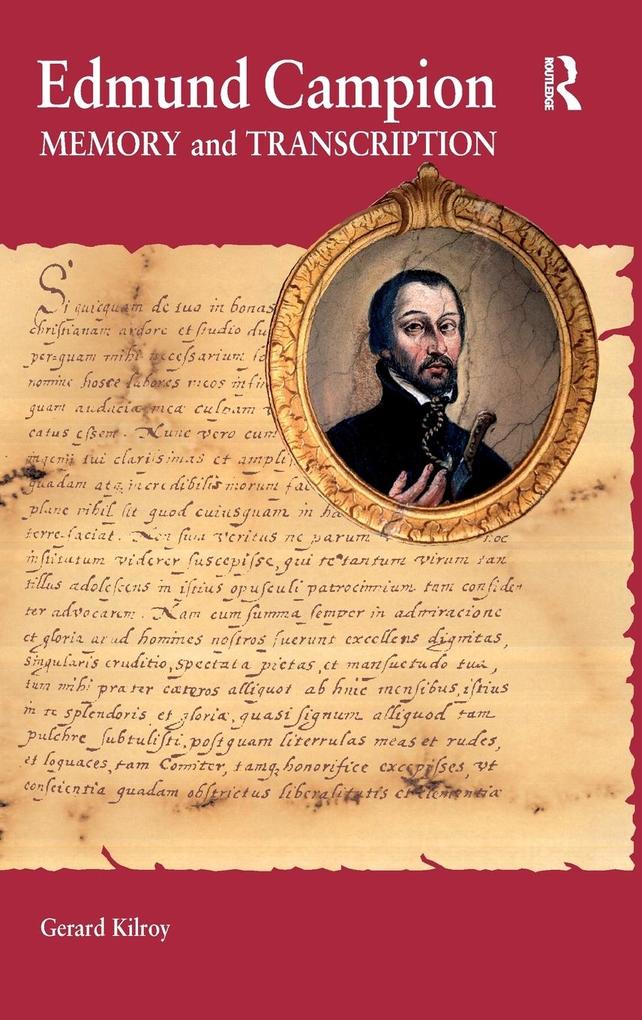 Edmund Campion
ROUTLEDGE
MEMORY and TRANSCRIPTION
Si quicquam de tuo in bonas
christianam ardore et studio
perquam mihi necessarium
nomine hosce labores meos
quam audacia mea culpam
catus essem. Nunc vero cum
ingenii tui clarissimas et
quadam atq incredibilis morum
plane nihil sit quod cuiusquam in
Non sum veritus ne parum hoc
institutum viderer suscepisse, qui te tantum virum tan
tillus adolescens in istius opusculi patrocinium tam confiden
ter advocarem. Nam cum summa semper in admiracione
et gloria apud homines nostros fuerunt excellens dignitas,
singularis eruditio, spectata pietas, et mansuetudo tua,
tum mihi præter cæteros alliquot ab hinc mensibus, istius
in te splendoris et gloriæ, quasi signum alliquod tam
pulchre subtulisti, postquam literrulas meas et rudes,
et loquaces, tam Comiter, tamq honorifice excepisses, vt
conscientia quadam obstrictus liberalitatis et clementiæ
Gerard Kilroy